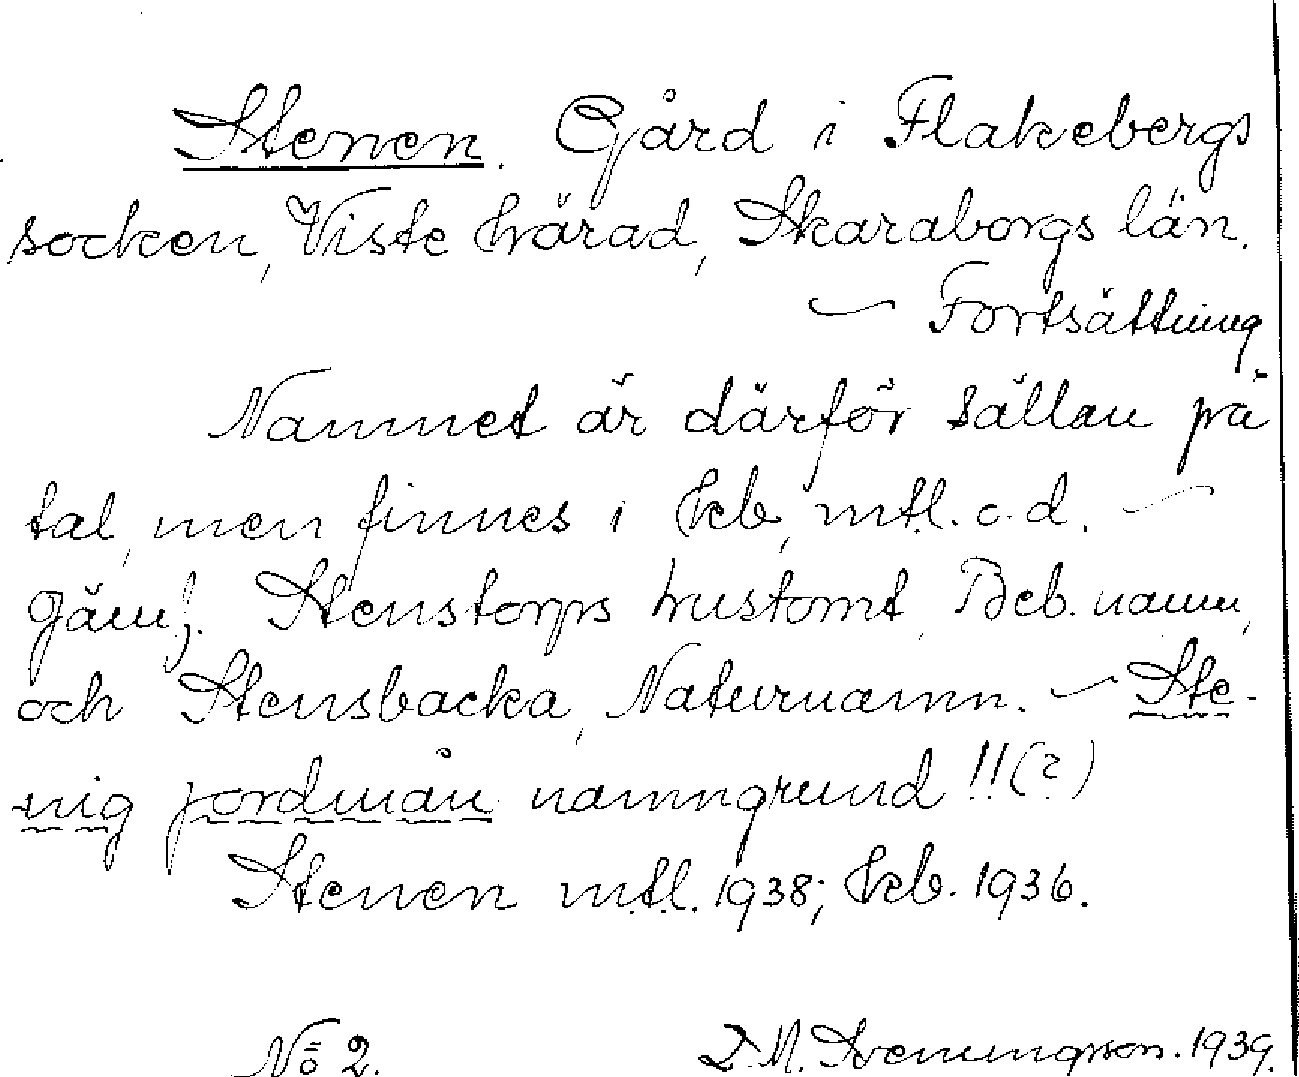 Stenen. Gård i Flakebergs
socken, Viste härad, Skaraborgs län.
— Fortsättning
Namnet är därför sällan på
tal, men finnes i kb, mtl. o.d. —
Jäm;. Stenstorps hustomt, Beb. namn,
och Stensbacka, Naturnamn. — Ste-
nig jordmån namngrund!!(?)
Stenen mtl. 1938; kb. 1936.
No 2. D.M. Svenungsson. 1939.